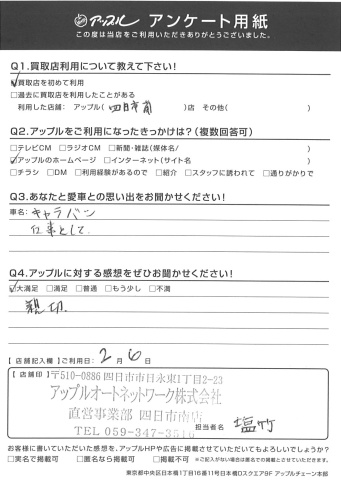 アップル アンケート用紙
この度は当店をご利用いただきありがとうございました。
Q1.買取店利用について教えて下さい!
☑買取店を初めて利用
□過去に買取店を利用したことがある
利用した店舗: アップル( 四日市南 )店 その他( )
Q2.アップルをご利用になったきっかけは?(複数回答可)
□テレビCM □ラジオCM □新聞・雑誌(媒体名/ )
☑アップルのホームページ □インターネット(サイト名 )
□チラシ □DM □利用経験があるので □紹介 □スタッフに誘われて □通りがかりで
Q3.あなたと愛車との思い出をお聞かせください!
車名: キャラバン
仕事として
Q4.アップルに対する感想をぜひお聞かせください!
☑大満足 □満足 □普通 □もう少し □不満
親切
【店舗記入欄】ご利用日: 2月6日
【店舗印】〒510-0886 四日市市日永東1丁目2-23
アップルオートネットワーク株式会社
直営事業部 四日市南店
TEL 059-347-3510
担当者名 塩竹
お客様に書いていただいた感想を、アップルHPや広告に掲載させていただいてもよろしいでしょうか?
□実名で掲載可 □匿名なら掲載可 □掲載不可 ※ご記入がない場合は匿名での掲載とさせていただきます。
東京都中央区日本橋1丁目16番11号日本橋Dスクエア8F アップルチェーン本部